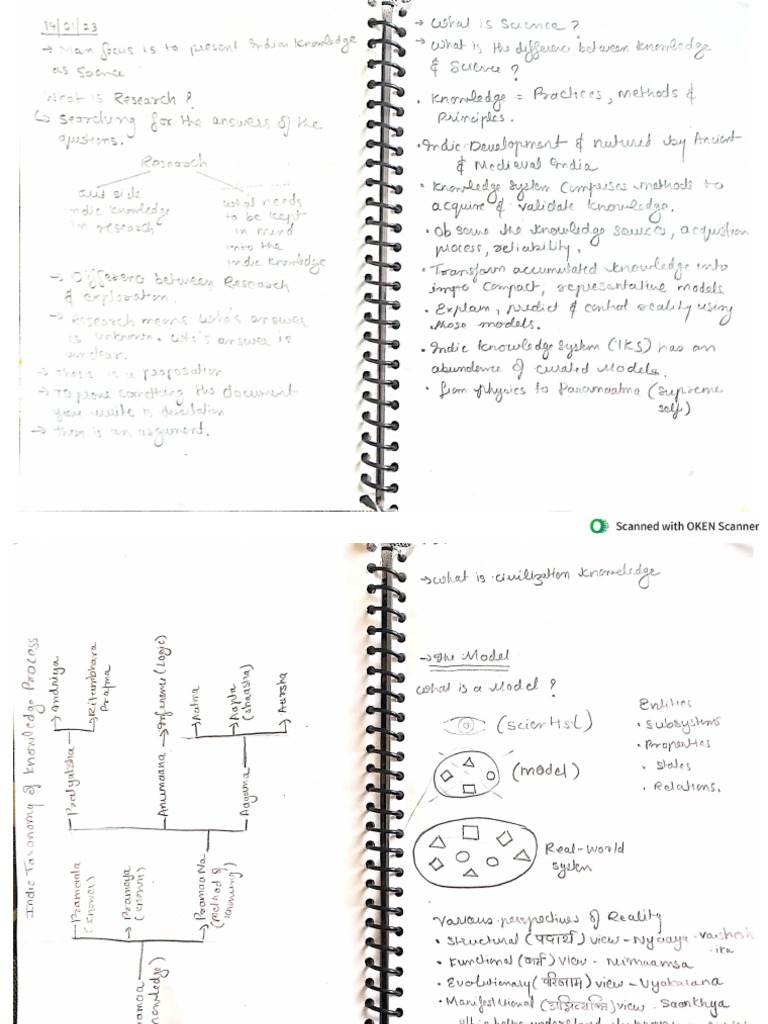 14/01/23
→ Main focus is to present Indian Knowledge
as Science
What is Research?
↳ Searching for the answers of the
questions.
Research
out side
indic knowledge
in research
what needs
to be kept
in mind
into the
indic knowledge
→ Difference between Research
& exploration.
→ Research means who's answer
is unknown. who's answer is
unclear.
→ Thesis is a proposation
→ To prove something the document
you write is
→ Then is an argument.
→ What is Science?
→ What is the difference between knowledge
& Science?
• Knowledge = Practices, methods &
Principles.
• Indic-Development & nutured by Ancient
& Medieval India
• Knowledge system comprises methods to
acquire & validate knowledge.
• Obsourne the knowledge sources, acquistion
process, reliability.
• Transform accumulated knowledge into
compact, representative models
• Explain, predict & control reality using
those models.
• Indic Knowledge System (IKS) has an
abundence of curated Models.
• from physics to Paramaatma (supreme
self)
Scanned with OKEN Scanner
Indic Taxonomy of Knowledge Process
Pramaata
(knower)
Prameya
(known)
PramaaNa
(method of
knowing)
Pratyaksha
→ Indriya
→ Ritambhara
Prajna
Anumaana → Inference (Logic)
Aagama
→ Aatma
→ Aapta
(shaastra)
→ Aarsha
→ What is civilization knowledge
→ The Model
What is a Model?
(scientist)
(model)
Real-World
System
Entities
• Subsystems
• Properties
• States
• Relations.
Various perspectives of Reality
• Structural (पदार्थ) view - Nyaaya - vaishesh
-ika
• Functional (कर्म) view - Mimaamsa
• Evolutionary (परिणाम) view - Vyakarana
• Manifestational (अभिव्यक्ति) view - Saankhya